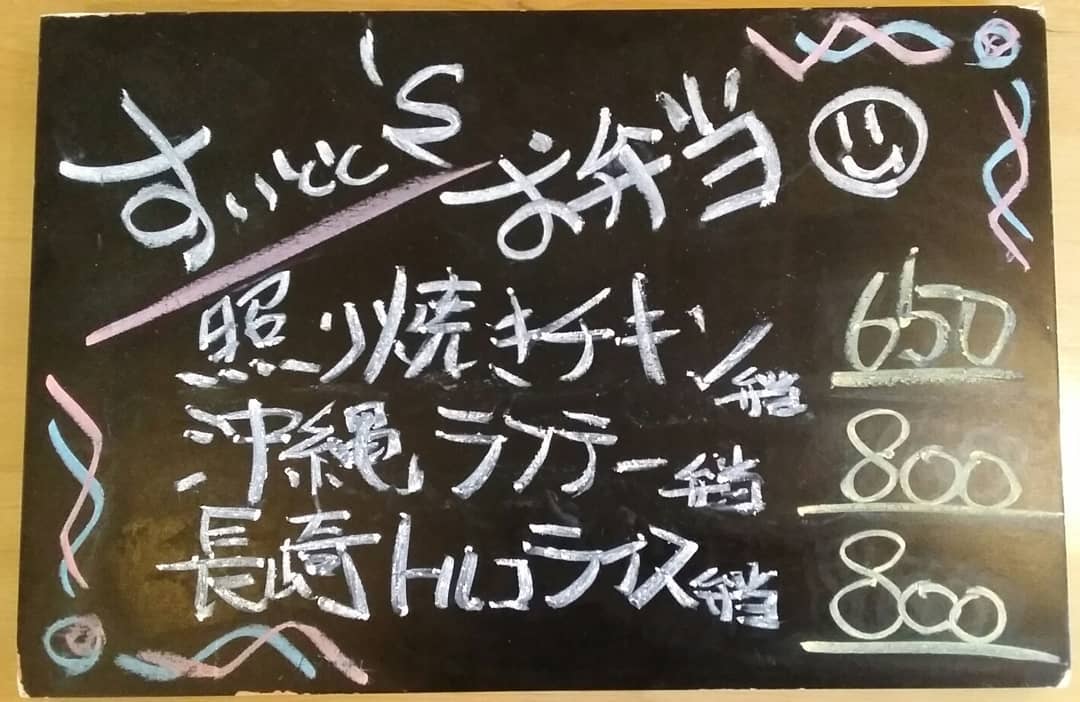 すいとと'S お弁当
照り焼きチキン弁当 650
沖縄ラフテー弁当 800
長崎トルコライス弁当 800